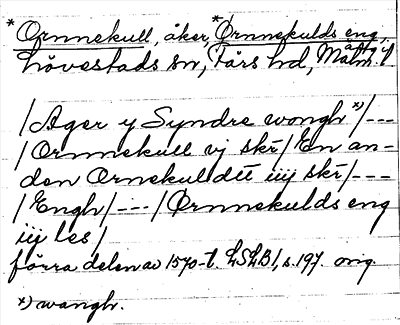 *Ornnekull, åker, *Ørnnekulds eng,
Lövestads sn, Färs hd, Malm.
/Ager y Syndre wongh x)/---
/Ornnekull vj skr/ En an-
den Ornekulldtt iiij skr/---
/Engh/---/Ørnnekulds eng
iiij les/
förra delen av 1570-t. LSLB1, s. 197. orig
x) wangh.